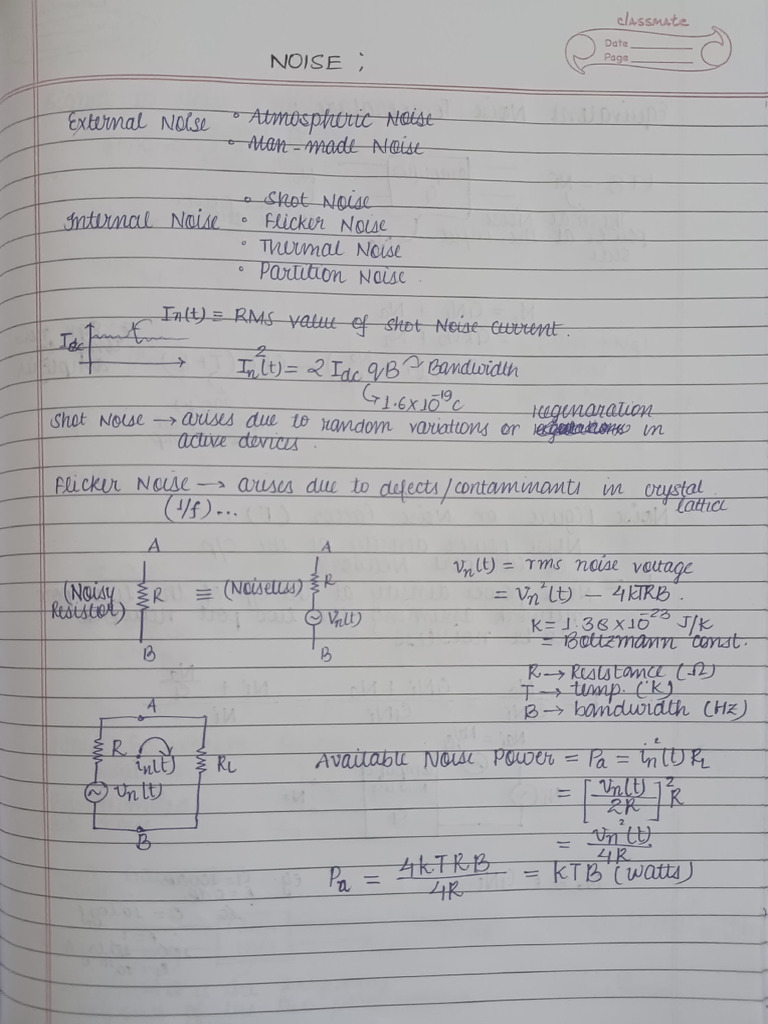 classmate
Date
Page
NOISE ;
External Noise • Atmospheric Noise
• Man-made Noise
Internal Noise • Shot Noise
• Flicker Noise
• Thermal Noise
• Partition Noise.
In(t) ≡ RMS value of shot Noise current.
Idc
In²(t) = 2 Idc qB → Bandwidth
↳ 1.6×10⁻¹⁹C
Shot Noise → arises due to random variations or regenaration in
active devices.
Flicker Noise → arises due to defects/contaminants in crystal
(1/f)... lattici
A A
(Noisy Resistor) R ≡ (Noiseless) R
Vn(t)
B B
Vn(t) = rms noise voltage
= Vn²(t) – 4kTRB.
K = 1.38×10⁻²³ J/K
= Boltzmann const.
R → Resistance (Ω)
T → temp. (°K)
B → bandwidth (Hz)
A
R in(t) RL
Vn(t)
B
Available Noise Power = Pa = in²(t) RL
= [Vn(t)/2R]² R
= Vn²(t)/4R
Pa = 4kTRB/4R = kTB (watts)